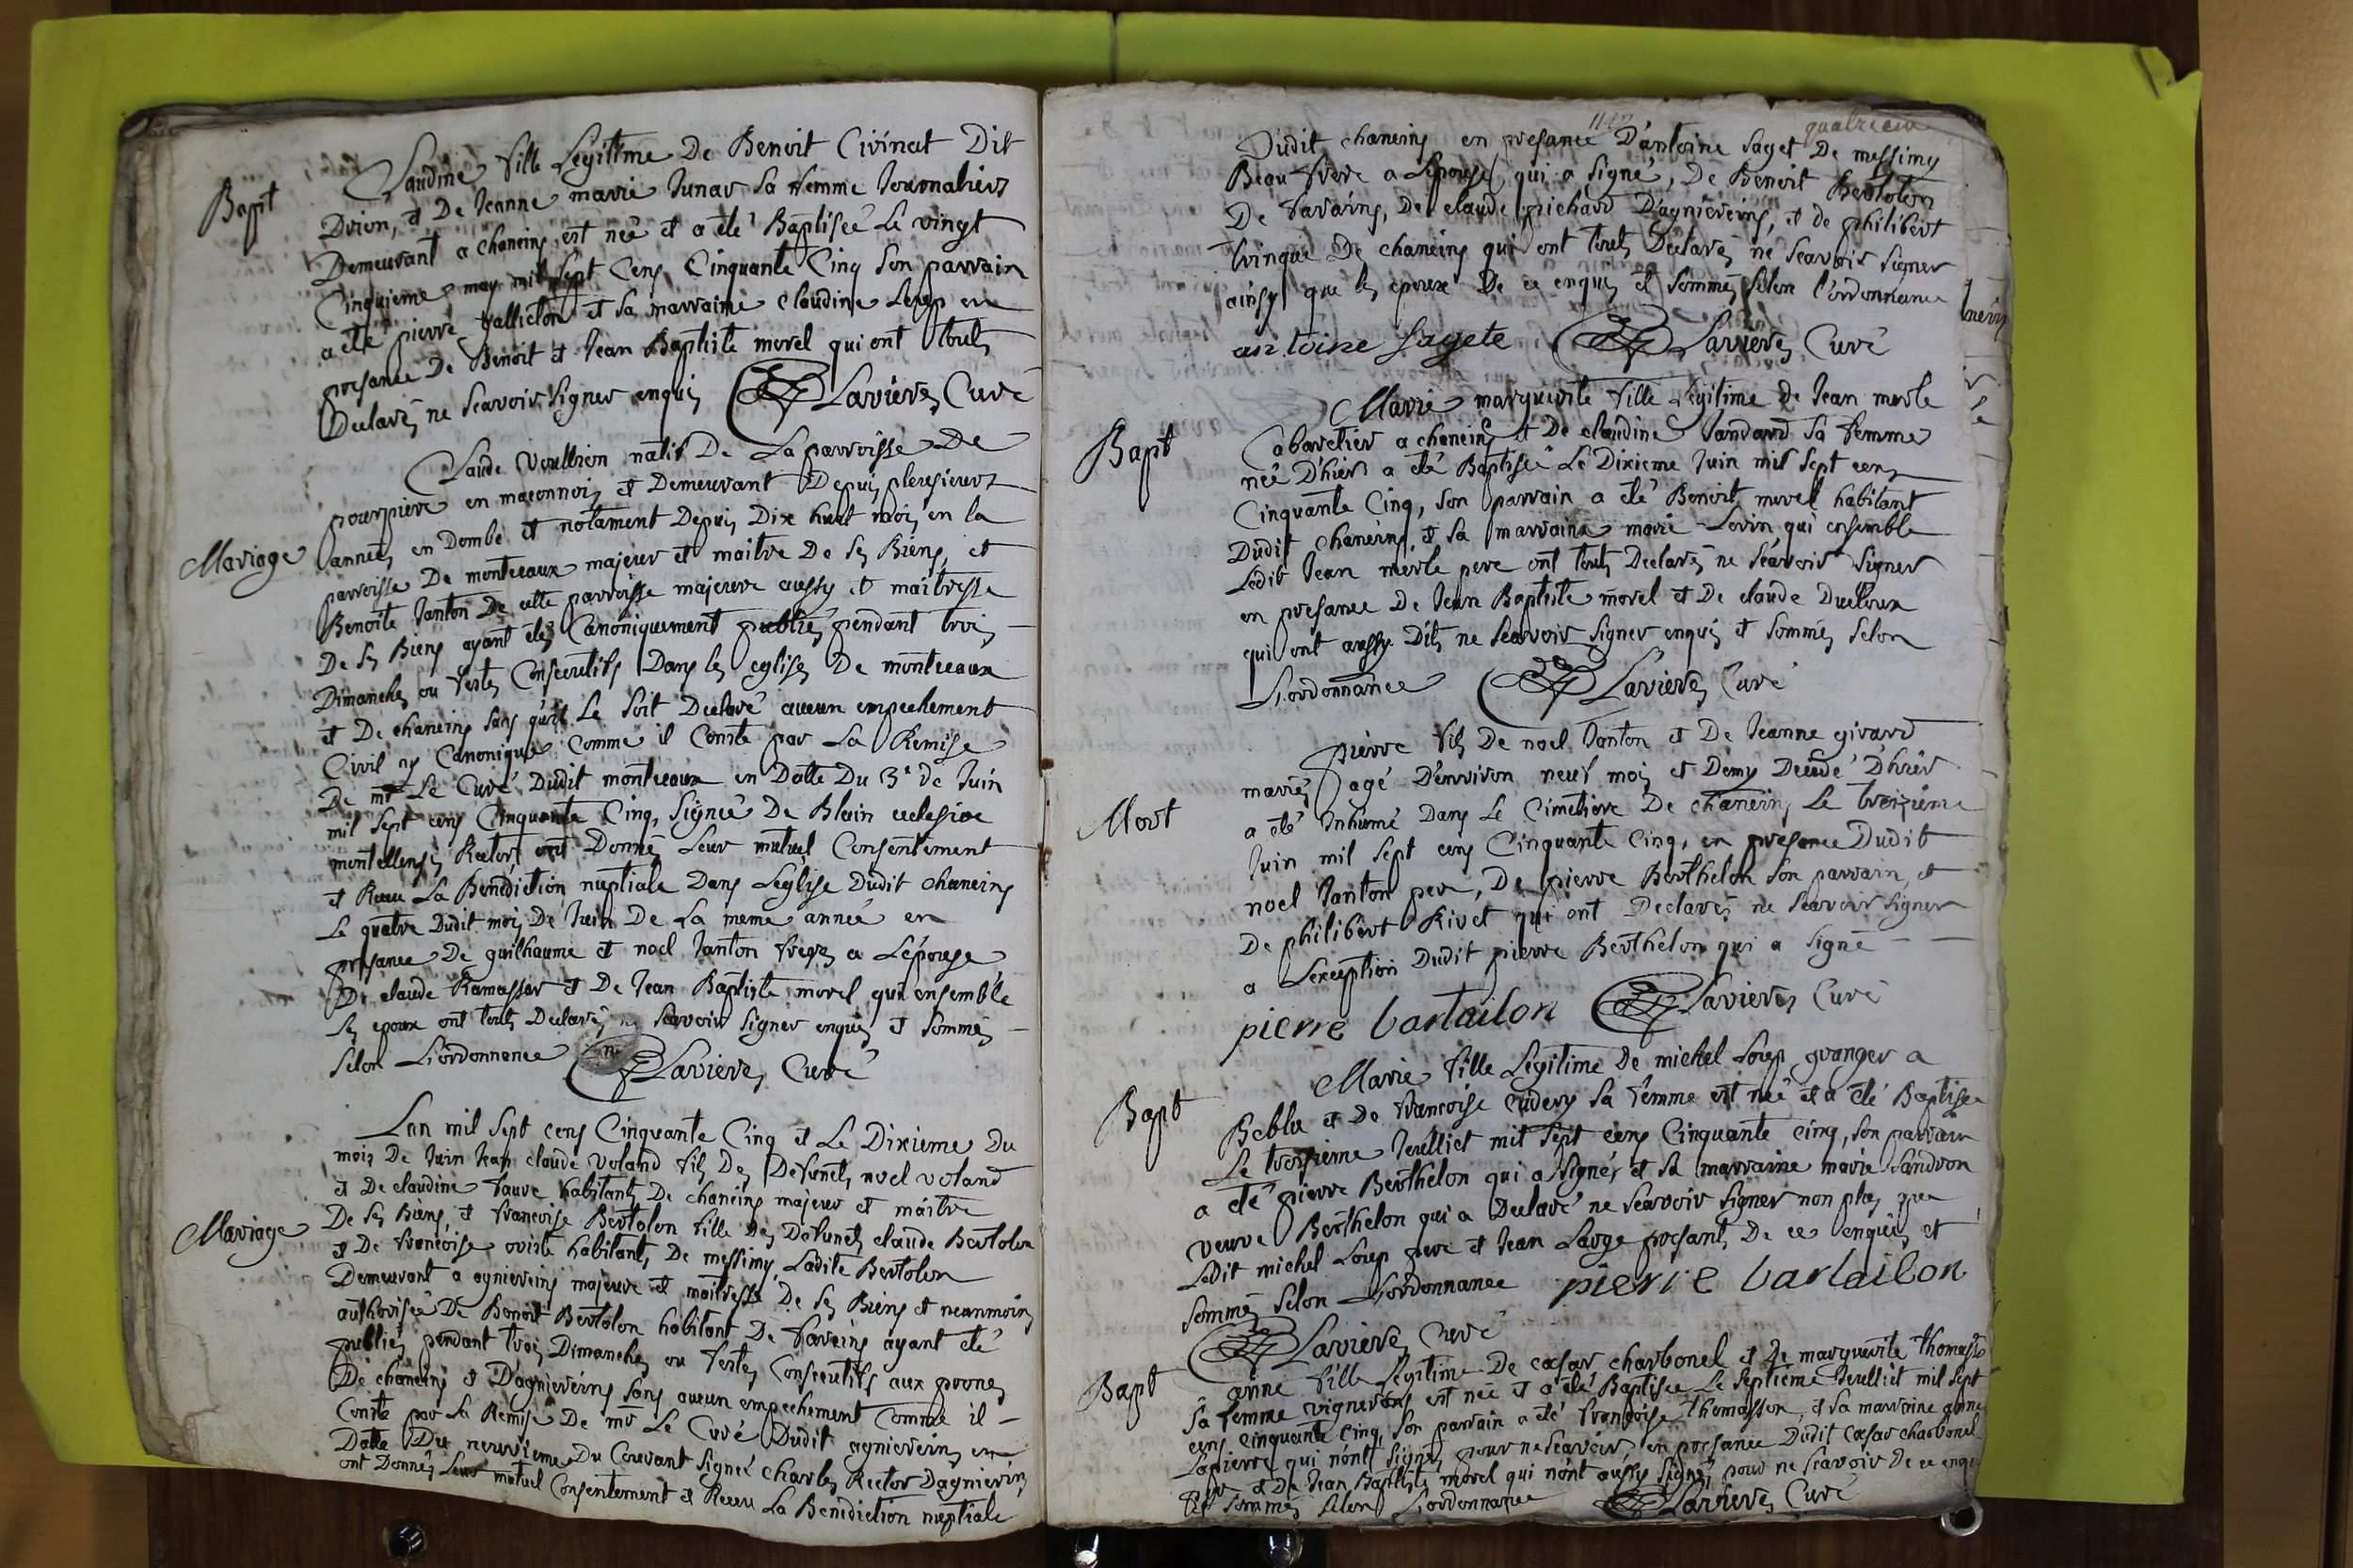 Bapt
Claudine fille Legitime De Benoit Civinet Dit
Drion, et De Jeanne marie Junar Sa femme Journaliers
Demeurant a chaneins est neé et a eté Baptiseé Le vingt
Cinquieme may mil Sept Cens Cinquante Cinq Son parrain
a eté pierre Valliclon et Sa marraine claudine Loup en
presance De Benoit et Jean Baptiste morel qui ont touts
Declarés ne Scavoir Signer enquis Lavieres Curé
Mariage
Claude Voullion natif De La parroisse De
pourpiere en maconnois et Demeurant Depuis plusieurs
anneés en Dombe et notament Depuis Dix huit mois en la
parroisse De montceaux majeur et maitre De Ses Biens, et
Benoite Janton De cette parroisse majeure aussy et maitresse
De Ses Biens ayant étés Canoniquement publiés pendant trois
Dimanches ou festes Consecutifs Dans les eglises De montceaux
et De chaneins Sans qu'il Se Soit Declaré aucun empechement
Civil ny Canonique Comme il Conste par La Remise
De mr Le Curé Dudit montceaux en Datte Du 3e de Juin
mil Sept cens Cinquante Cinq, Signeé De Blain ecclesiae
montellensis Rector ont Donnés Leur mutuel Consentement
et Receu La Benediction nuptiale Dans Leglise Dudit chaneins
Le quatre Dudit mois De Juin De La meme anneé en
presance De guilhaume et noel Janton freres a Lépouse
De claude Ramassar et De Jean Baptiste morel qui ensemble
Les epoux ont touts Declarés ne Scavoir Signer enquis et Sommés
Selon Lordonnance Lavieres Curé
Mariage
Lan mil Sept cens Cinquante Cinq et Le Dixieme Du
mois De Juin Jean claude Voland fils Des Defunts noel voland
et De claudine favre habitants De chaneins majeur et maitre
De Ses Biens, et francoise Bertolon fille Des Defunts claude Bertolon
et De francoise oviste habitants De messimy Ladite Bertolon
Demeurant a agniereins majeure et maitresse De Ses Biens et neanmoins
authoriseé De Benoit Bertolon habitant De fareins ayant eté
publiés pendant trois Dimanches ou festes Consecutifs aux prones
De chaneins et D'agniereins Sans aucun empechement Comme il
Conste par La Remise De mr Le Curé Dudit agniereins en
Datte Du neuvieme Du Courant Signeé charles Rector Dagniereins
ont Donnés Leur mutuel Consentement et Receu La Benediction nuptiale
quatrieme
Dudit chaneins en presance D'antoine Saget De messimy
Beau frere a Lépouse, qui a Signé, De Benoit Bertolon
De fareins, De claude prichard D'agniereins, et de philibert
trinquë De chaneins qui ont touts Declarés ne Scavoir Signer
ainsy que les epoux De ce enquis et Sommés Selon l'ordonnance
antoine Sagete Lavieres Curé
Bapt
Marie marguerite fille Legitime de Jean merle
Cabaretier a chaneins et De claudine Jandard Sa femme
neé D'hier a eté Baptiseé Le Dixieme Juin mil Sept cens
Cinquante Cinq, Son parrain a eté Benoit morel habitant
Dudit chaneins, et Sa marraine marie Lorin qui ensemble
Ledit Jean merle pere ont touts Declarés ne Scavoir Signer
en presance De Jean Baptiste morel et De claude Ducloux
qui ont aussy Dits ne Scavoir Signer enquis et Sommés Selon
Lordonnance Lavieres Curé
Mort
pierre fils De noel Janton et De Jeanne girard
mariés agé D'environ neuf mois et Demy Decedé D'hier
a eté Inhumé Dans Le Cimetiere De chaneins Le treizieme
Juin mil Sept cens Cinquante Cinq, en presance Dudit
noel Janton pere, De pierre Berthelon Son parrain, et
De philibert Rivet qui ont Declarés ne Scavoir Signer
a Lexception Dudit pierre Berthelon qui a Signé
pierre bartailon Lavieres Curé
Bapt
Marie fille Legitime De michel Loup granger a
Beblu et De francoise cudery Sa femme est neé et a eté Baptiseé
Le troisieme Juilliet mil Sept cens Cinquante cinq, Son parrain
a eté pierre Berthelon qui a Signés et Sa marraine marie Sandron
veuve Berthelon qui a Declaré ne Scavoir Signer non plus que
Ledit michel Loup pere et Jean Large presants De ce enquis et
Sommés Selon Lordonnance pierre bartailon
Lavieres Curé
Bapt
anne fille Legitime De cæsar charbonel et De marguerite thomasson
Sa femme vignerons est neé et a eté Baptiseé Le Septieme Juilliet mil Sept
cens cinquante Cinq, Son parrain a eté francoise thomasson, et Sa marraine anne
Lapierre qui n'ont Signés pour ne Scavoir, en presance Dudit cæsar charbonel
pere et De Jean Baptiste morel qui n'ont aussy Signés pour ne Scavoir De ce enquis
et Sommés Selon Lordonnance Lavieres Curé